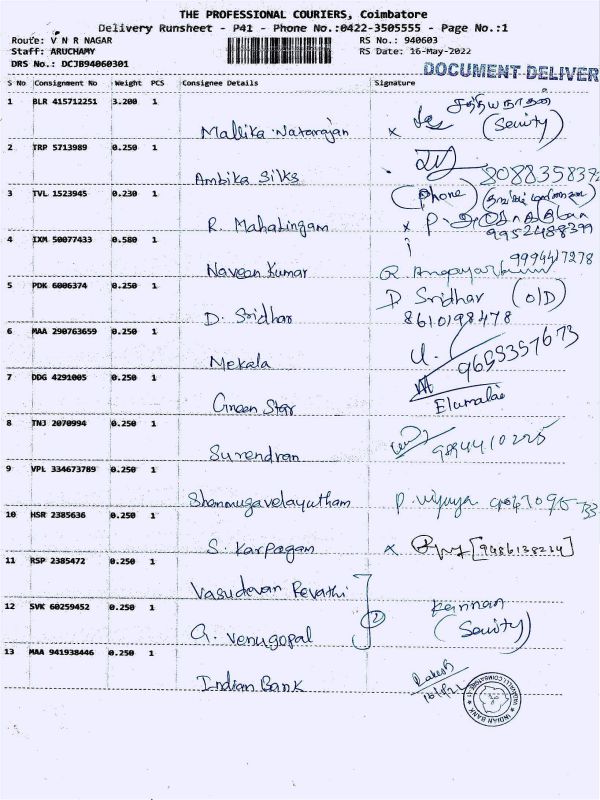 THE PROFESSIONAL COURIERS, Coimbatore
Delivery Runsheet - P41 - Phone No.:0422-3505555 - Page No.:1
Route: V N R NAGAR RS No.: 940603
Staff: ARUCHAMY RS Date: 16-May-2022
DRS No.: DCJB94060301
DOCUMENT DELIVER
S No Consignment No Weight PCS Consignee Details Signature
1 BLR 415712251 3.200 1
Mallika Natarajan x சத்தியநாதன்
(Security)
2 TRP 5713989 0.250 1
Ambika Silks
3 TVL 1523945 0.230 1 (Phone)
R. Mahalingam x
9952488399
4 IXM 50077433 0.580 1
Naveen Kumar 9994417278
5 PDK 6006374 0.250 1
D. Sridhar D Sridhar (O/D)
8610198478
6 MAA 290763659 0.250 1
Mekala 9655357673
7 DDG 4291005 0.250 1
Green Star Elumalai
8 TNJ 2070994 0.250 1
Surendran 9894410225
9 VPL 334673789 0.250 1
Shanmugavelayutham P. Vijaya
10 HSR 2385636 0.250 1
S. Karpagam x [9486138234]
11 RSP 2385472 0.250 1
Vasudevan Revathi
12 SVK 60259452 0.250 1 2 Kannan
G. Venugopal (Security)
13 MAA 941938446 0.250 1
Indian Bank Rakesh
INDIAN BANK